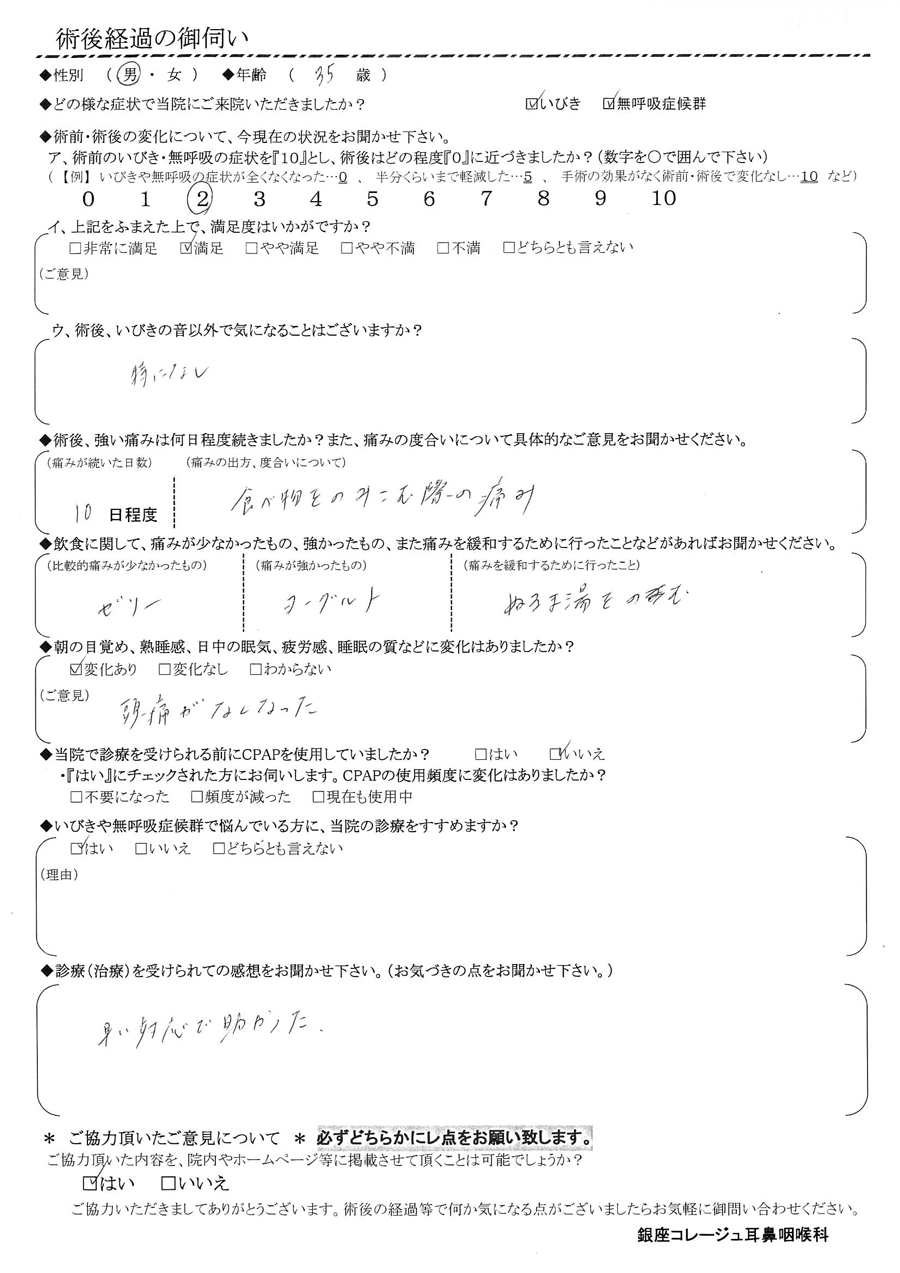 術後経過の御伺い
◆性別 ( 男 ・ 女 ) ◆年齢 ( 35 歳 )
◆どの様な症状で当院にご来院いただきましたか? ☑いびき ☑無呼吸症候群
◆術前・術後の変化について、今現在の状況をお聞かせ下さい。
ア、術前のいびき・無呼吸の症状を『10』とし、術後はどの程度『0』に近づきましたか?(数字を〇で囲んで下さい)
(【例】いびきや無呼吸の症状が全くなくなった…0 、 半分くらいまで軽減した…5 、 手術の効果がなく術前・術後で変化なし…10 など)
0 1 2 3 4 5 6 7 8 9 10
イ、上記をふまえた上で、満足度はいかがですか?
□非常に満足 ☑満足 □やや満足 □やや不満 □不満 □どちらとも言えない
(ご意見)
ウ、術後、いびきの音以外で気になることはございますか?
特になし
◆術後、強い痛みは何日程度続きましたか?また、痛みの度合いについて具体的なご意見をお聞かせください。
(痛みが続いた日数) (痛みの出方、度合いについて)
10 日程度 食べ物をのみこむ際の痛み
◆飲食に関して、痛みが少なかったもの、強かったもの、また痛みを緩和するために行ったことなどがあればお聞かせください。
(比較的痛みが少なかったもの) (痛みが強かったもの) (痛みを緩和するために行ったこと)
ゼリー ヨーグルト ぬるま湯をのむ
◆朝の目覚め、熟睡感、日中の眠気、疲労感、睡眠の質などに変化はありましたか?
☑変化あり □変化なし □わからない
(ご意見)
頭痛がなくなった
◆当院で診療を受けられる前にCPAPを使用していましたか? □はい ☑いいえ
・『はい』にチェックされた方にお伺いします。CPAPの使用頻度に変化はありましたか?
□不要になった □頻度が減った □現在も使用中
◆いびきや無呼吸症候群で悩んでいる方に、当院の診療をすすめますか?
☑はい □いいえ □どちらとも言えない
(理由)
◆診療(治療)を受けられての感想をお聞かせ下さい。(お気づきの点をお聞かせ下さい。)
早い対応で助かった.
* ご協力頂いたご意見について * 必ずどちらかにレ点をお願い致します。
ご協力頂いた内容を、院内やホームページ等に掲載させて頂くことは可能でしょうか?
☑はい □いいえ
ご協力いただきましてありがとうございます。術後の経過等で何か気になる点がございましたらお気軽に御問い合わせください。
銀座コレージュ耳鼻咽喉科